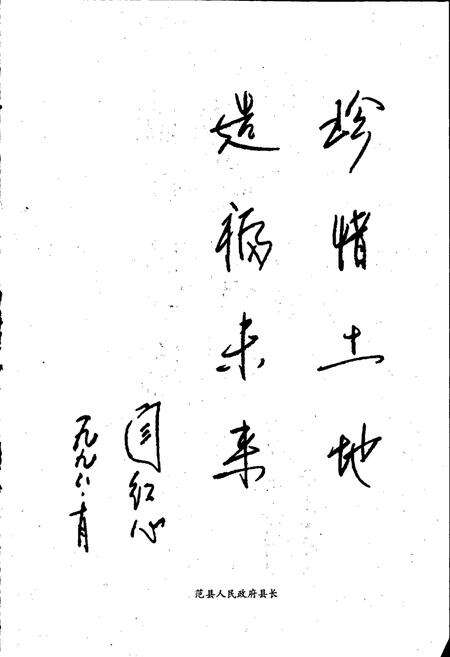 珍惜土地
造福未来
闫红心
一九九八.
范县人民政府县长